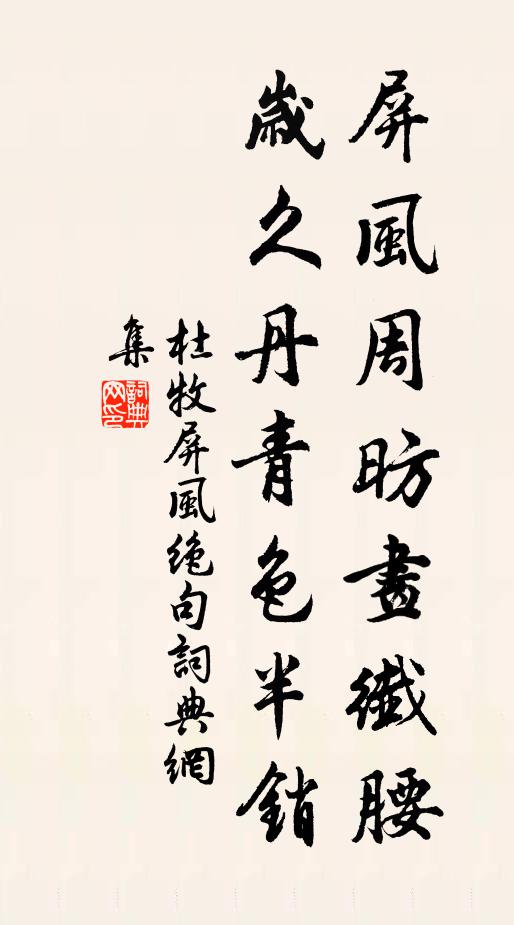 屏風周昉畫纖腰
歲久丹青色半銷
杜牧屏風絶句詞典網
集
詞典網印